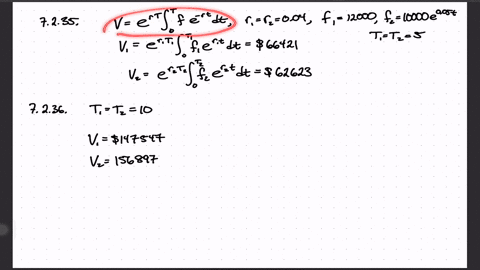 7.2.35. V = e^{rT} ∫_0^T f e^{-rt} dt, r₁ = r₂ = 0.04, f₁ = 12000, f₂ = 10000 e^{0.05t}
T₁ = T₂ = 5
V₁ = e^{r₁T₁} ∫_0^{T₁} f₁ e^{r₁t} dt = $66421
V₂ = e^{r₂T₂} ∫_0^{T₂} f₂ e^{r₂t} dt = $62623
7.2.36. T₁ = T₂ = 10
V₁ = $147547
V₂ = 156897